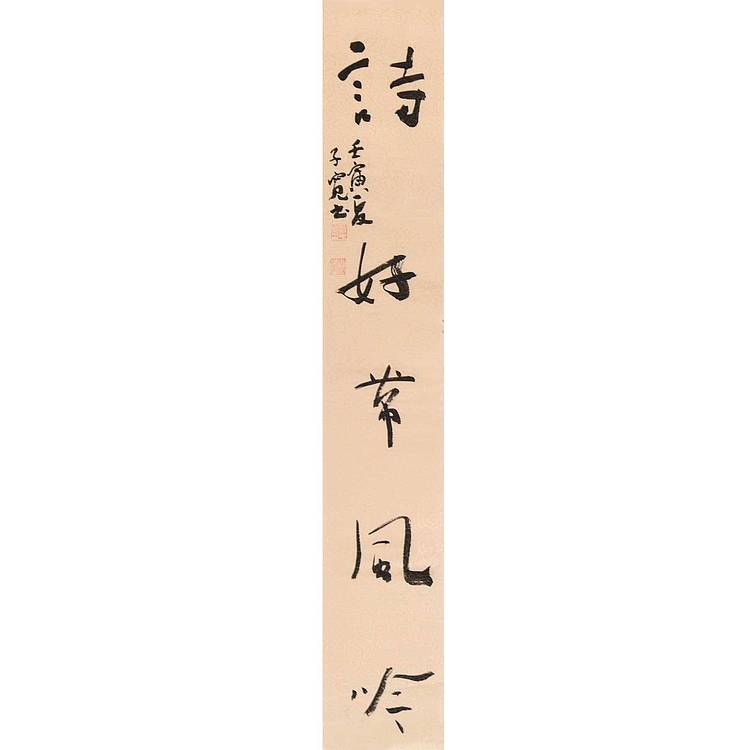 詩好帶風吟
壬寅夏
子寬書